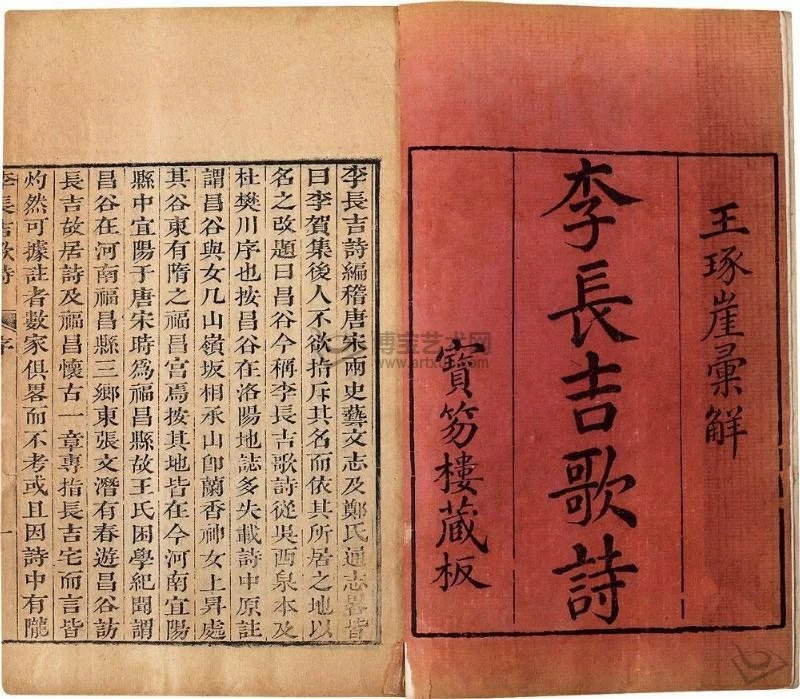 王琢崖彙解
李長吉歌詩
寶笏樓藏板
李長吉詩編稽唐宋兩史藝文志及鄭氏通志畧皆
曰李賀集後人不欲指斥其名而依其所居之地以
名之改題曰昌谷今稱李長吉歌詩從吳西泉本及
杜樊川序也按昌谷在洛陽地誌多失載詩中原註
謂昌谷與女几山嶺坂相承山卽蘭香神女上昇處
其谷東有隋之福昌宮焉按其地皆在今河南宜陽
縣中宜陽于唐宋時爲福昌縣故王氏困學紀聞謂
昌谷在河南福昌縣三鄉東張文潛有春遊昌谷訪
長吉故居詩及福昌懷古一章專指長吉宅而言皆
灼然可據註者數家俱畧而不考或且因詩中有隴
李長吉歌詩 序 一
博宝艺术网